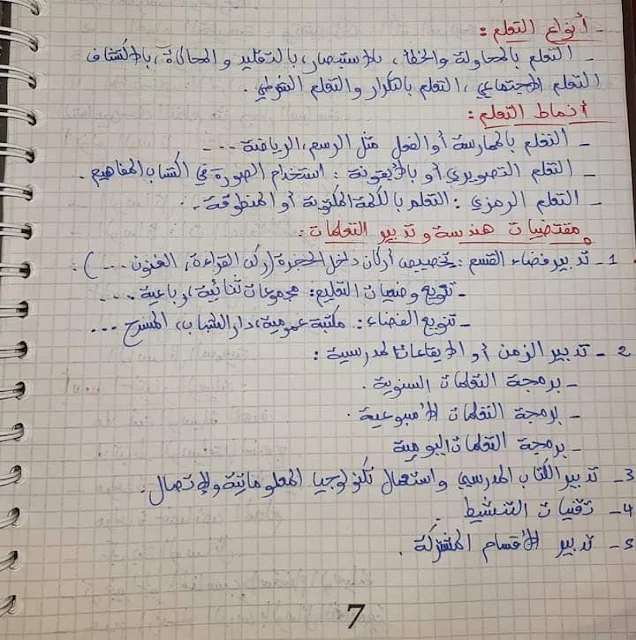 - أنواع التعلم :
- التعلم بالمحاولة والخطأ، بالاستبصار، بالتقليد والمحاكاة، بالاكتشاف
التعلم الاجتماعي، التعلم بالتكرار والتعلم الشرطي.
أنماط التعلم :
- التعلم بالممارسة أو الفعل مثل الرسم، الرياضة ...
- التعلم التصويري أو بالأيقونة : استخدام الصورة في اكتساب المفاهيم.
- التعلم الرمزي : التعلم بالكلمة المكتوبة أو المنطوقة.
مقتضيات هندسة و تدبير التعلمات :
1- تدبير فضاء القسم : تخصيص أركان داخل الحجرة (ركن القراءة، الفنون ...).
- تنويع وضعيات التعليم : مجموعات ثنائية، رباعية، ...
- تنويع الفضاء : مكتبة عمومية، دار الشباب، المسرح ...
2- تدبير الزمن أو الإيقاعات المدرسية :
- برمجة التعلمات السنوية.
- برمجة التعلمات الأسبوعية.
- برمجة التعلمات اليومية
3- تدبير الكتاب المدرسي واستعمال تكنولوجيا المعلوماتية والإتصال.
4- تقنيات التنشيط
5- تدبير الأقسام المشتركة.
7